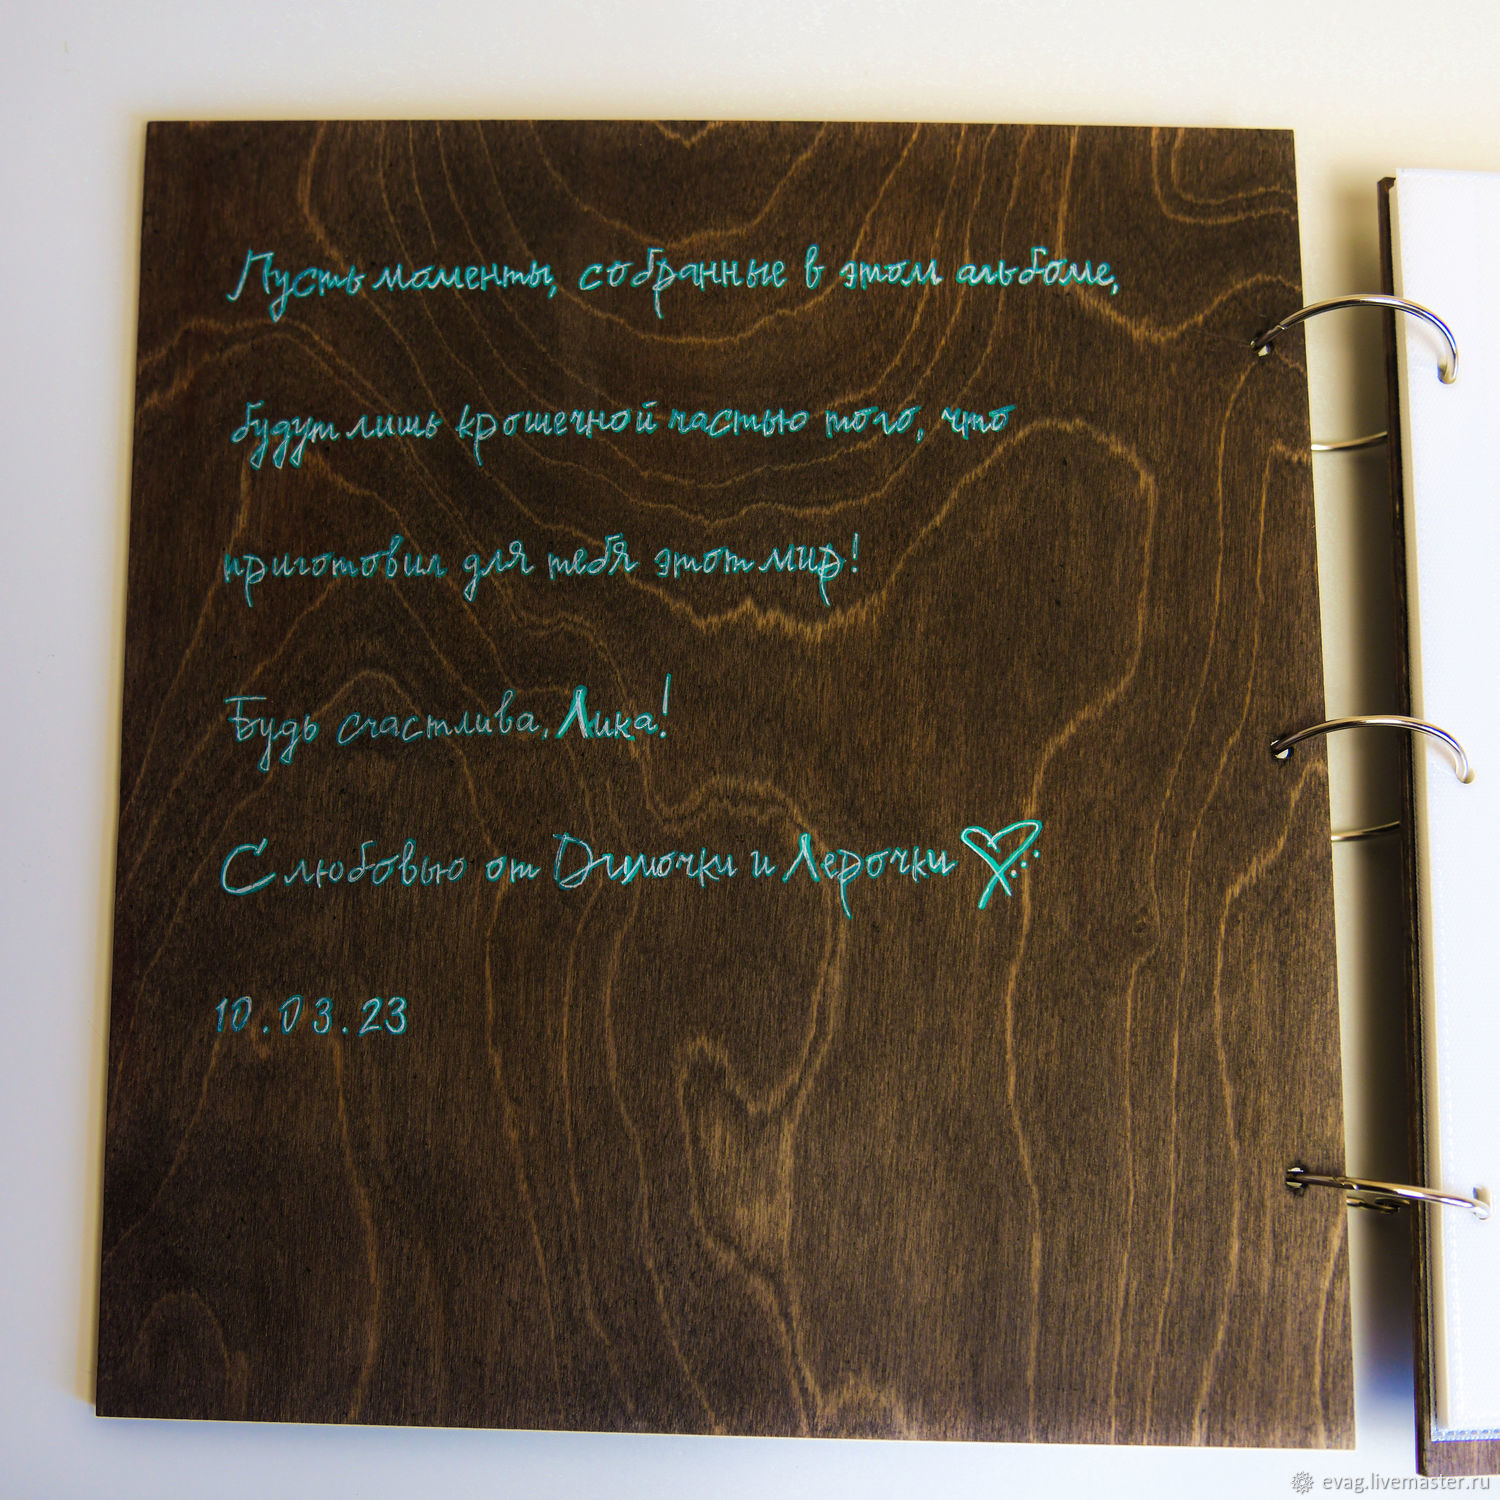 Пусть моменты, собранные в этом альбоме,
будут лишь крошечной частью того, что
приготовил для тебя этот мир!
Будь счастлива, Лика!
С любовью от Димочки и Лерочки
10.03.23
evag.livemaster.ru